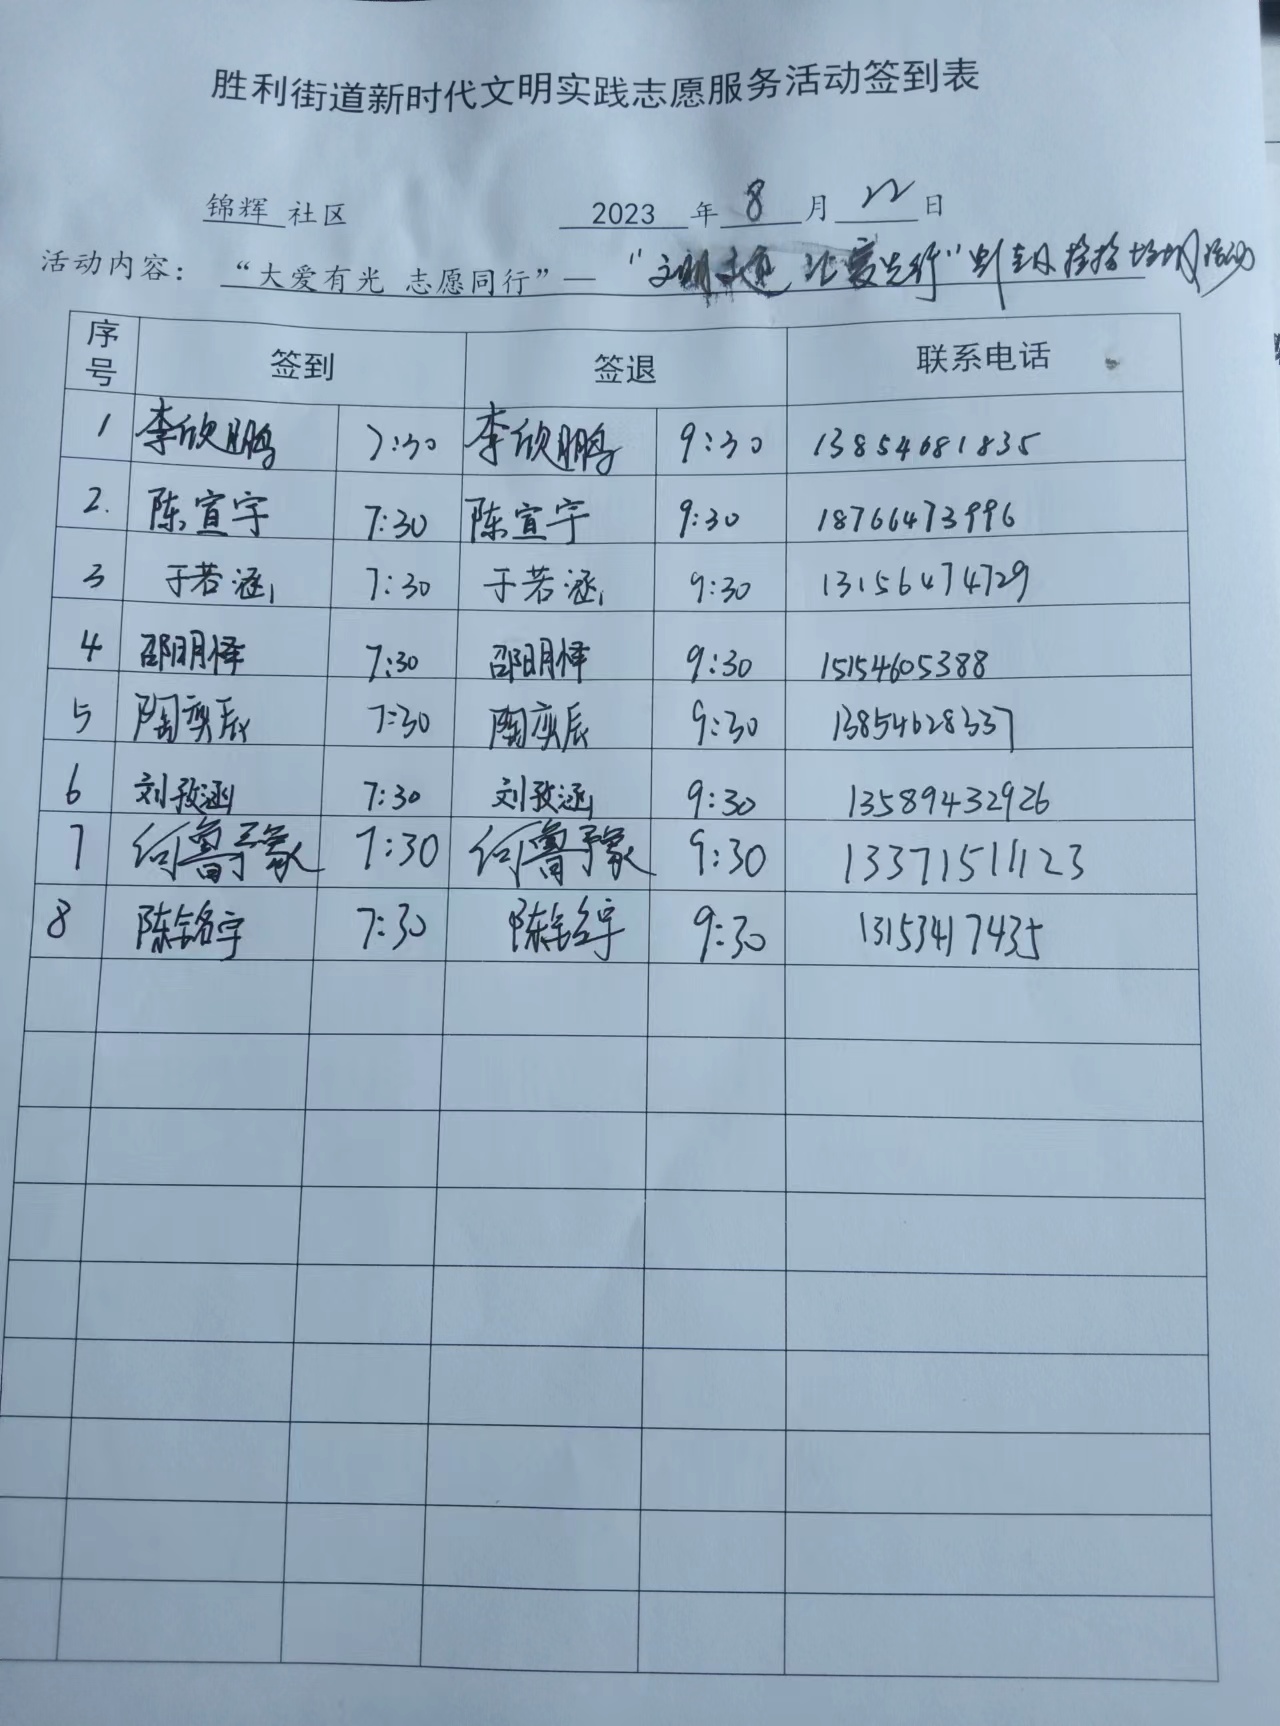 胜利街道新时代文明实践志愿服务活动签到表
锦辉 社区 2023 年 8 月 22 日
活动内容： “大爱有光 志愿同行”— “文明交通 让爱先行”
序号 签到 签退 联系电话
1 李欣鹏 7:30 李欣鹏 9:30 13854681835
2. 陈宣宇 7:30 陈宣宇 9:30 18766473996
3 于若涵 7:30 于若涵 9:30 13156474729
4 邵明怿 7:30 邵明怿 9:30 15154605388
5 陶奕辰 7:30 陶奕辰 9:30 13854628337
6 刘孜涵 7:30 刘孜涵 9:30 13589432926
7 何鲁豫 7:30 何鲁豫 9:30 13371511123
8 陈铭宇 7:30 陈铭宇 9:30 13153417435